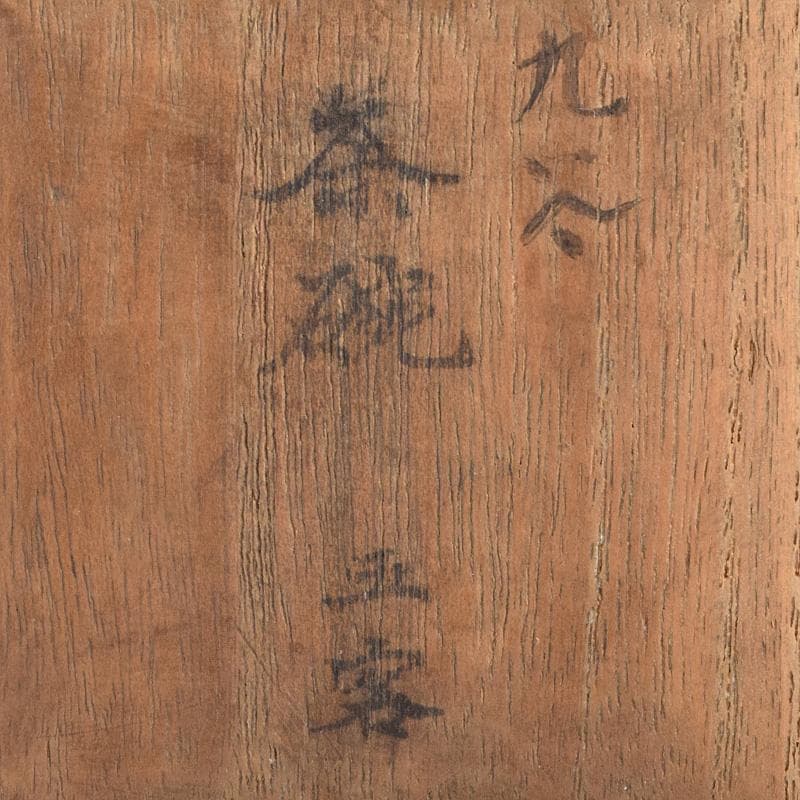 九谷
茶碗 五客